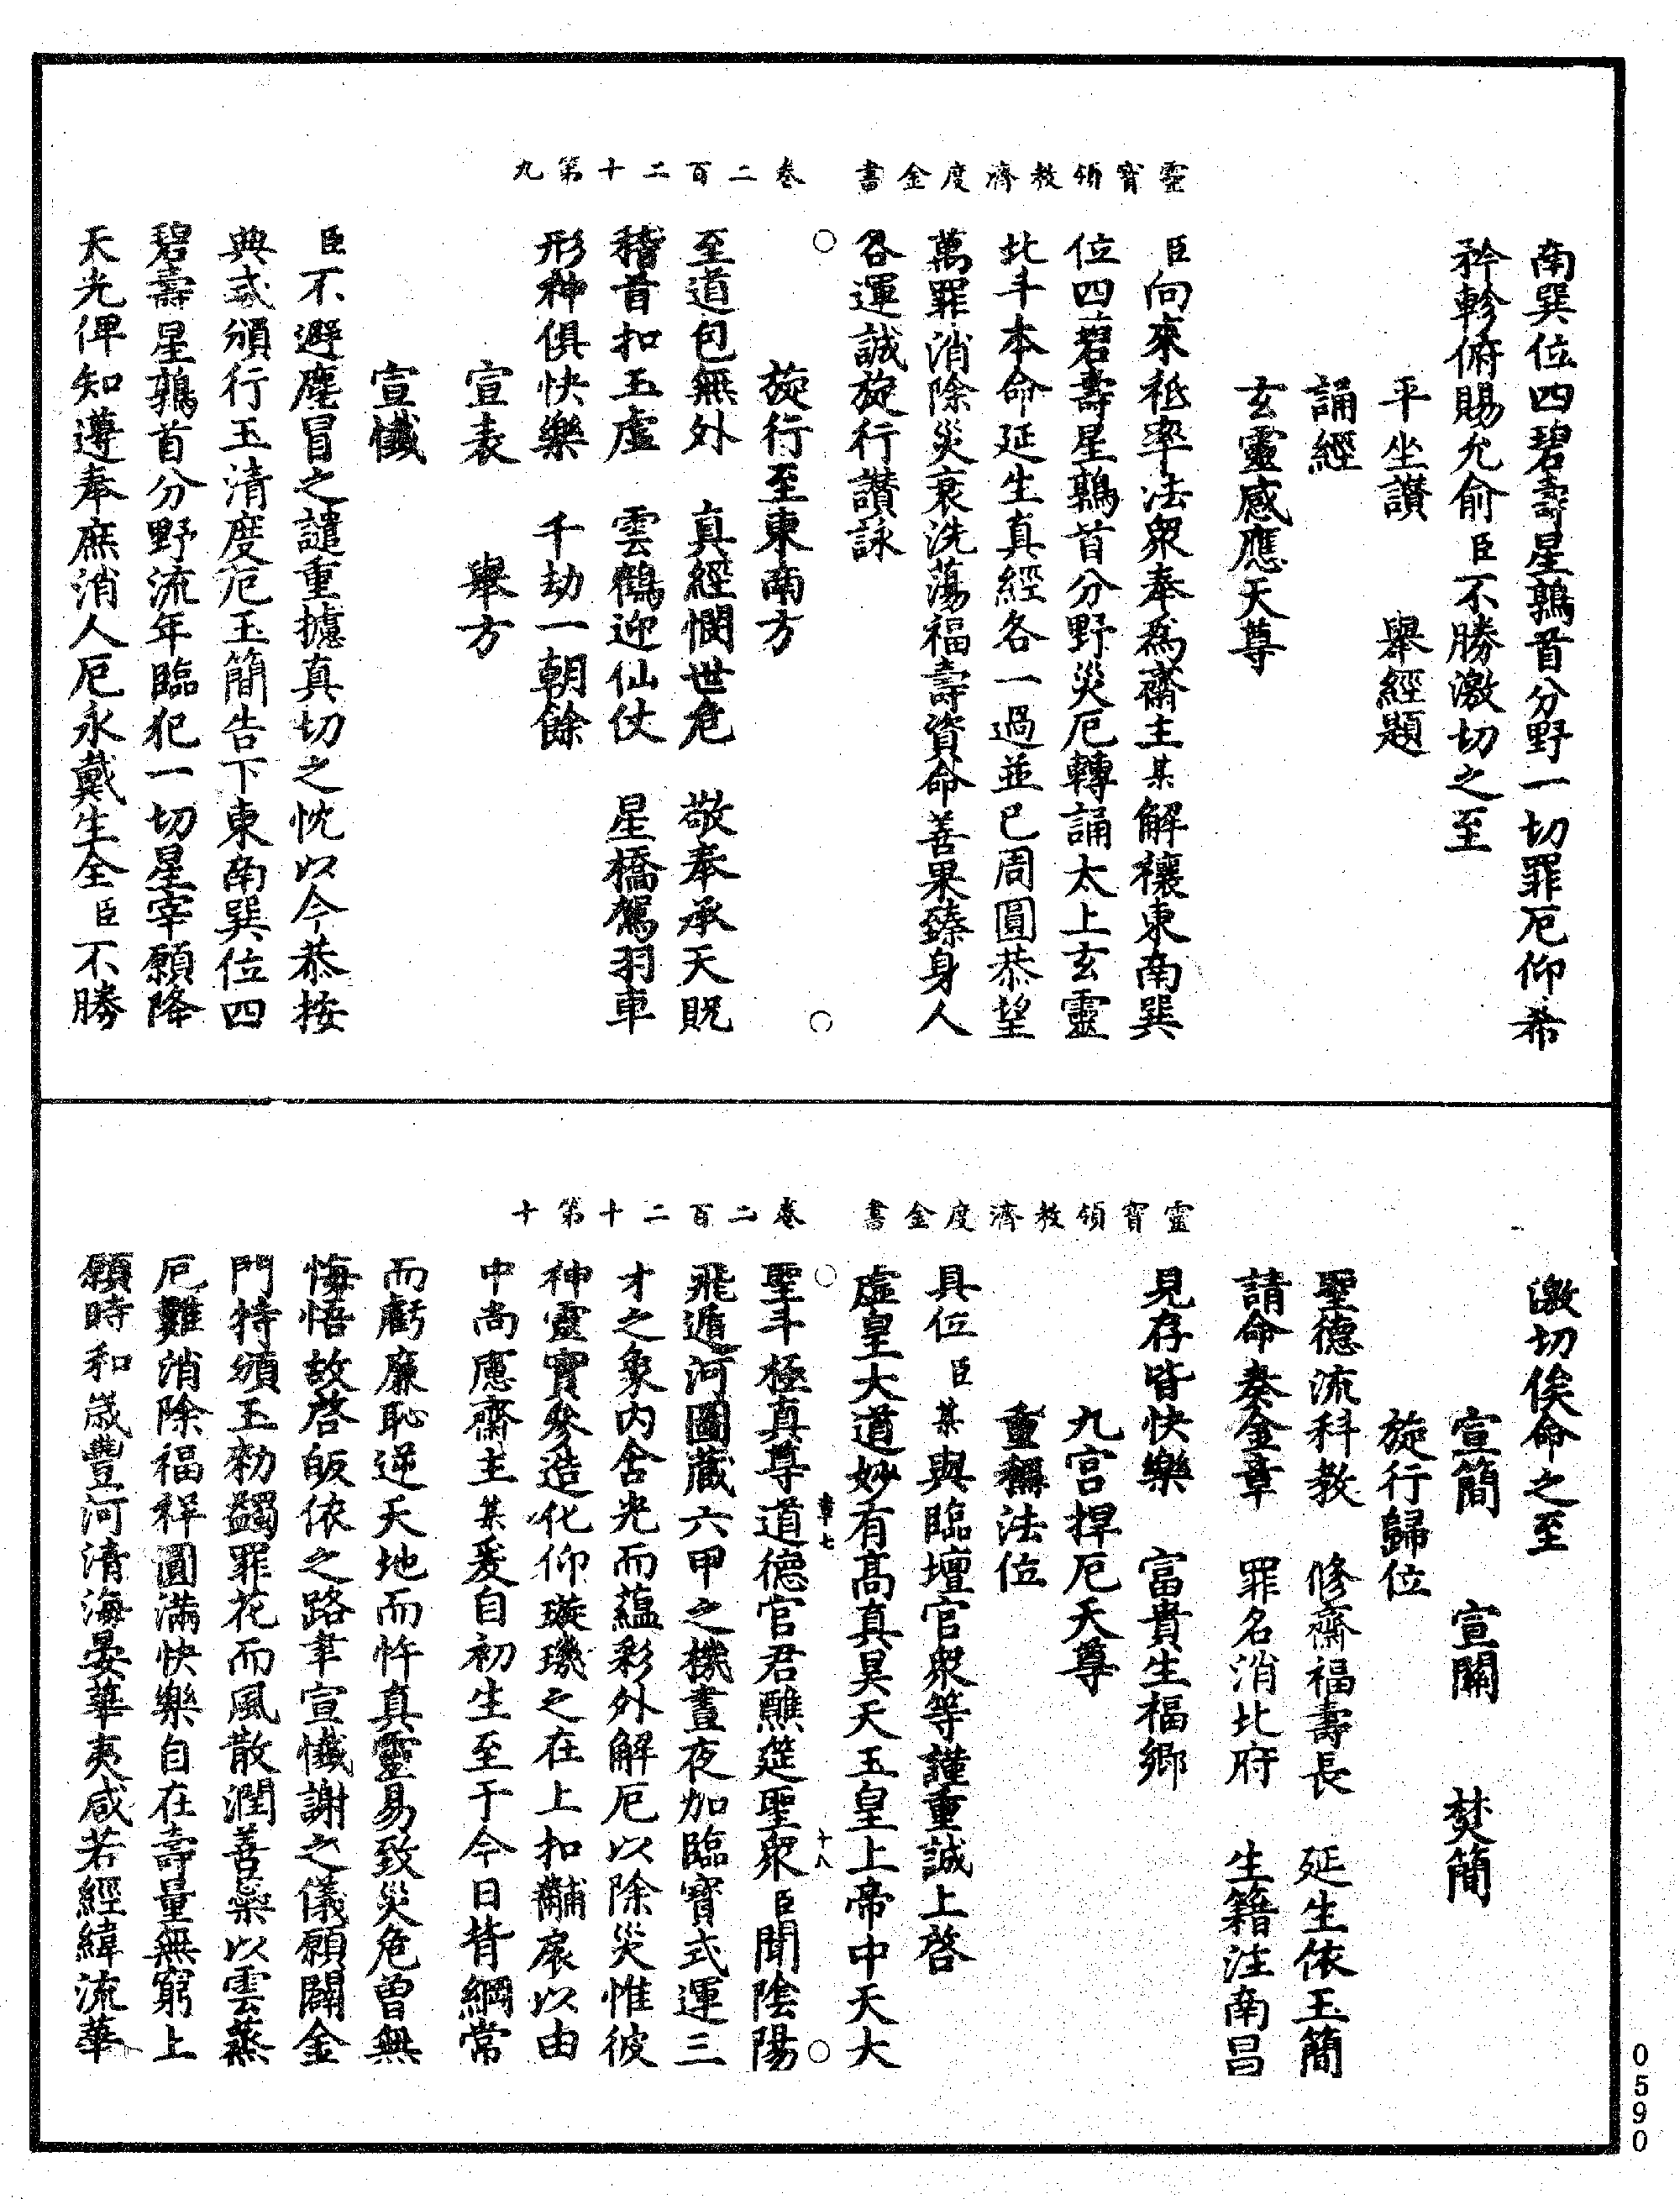 靈寶領教濟度金書　卷二百二十第九
南巽位四碧壽星鶉首分野一切罪厄仰希
矜軫俯賜允俞臣不勝激切之至
平坐讚　舉經題
誦經
玄靈感應天尊
臣向來祗率法衆奉爲齋主某解禳東南巽
位四碧壽星鶉首分野災厄轉誦太上玄靈
北斗本命延生真經各一過並已周圓恭望
萬罪消除災衰洗蕩福壽資命善果臻身人
各運誠旋行讚詠
旋行至東南方
至道包無外　真經憫世危　敬奉承天貺
稽首扣玉虛　雲鶴迎仙仗　星橋駕羽車
形神俱快樂　千劫一朝餘
宣表　舉方
宣懺
臣不避塵冒之譴重攄真切之忱以今恭按
典式頒行玉清度厄玉簡告下東南巽位四
碧壽星鶉首分野流年臨犯一切星宰願降
天光俾知遵奉庶消人厄永戴生全臣不勝
靈寶領教濟度金書　卷二百二十第十
激切俟命之至
宣簡　宣關　焚簡
旋行歸位
聖德流科教　修齋福壽長　延生依玉簡
請命奏金章　罪名消北府　生籍注南昌
見存皆快樂　富貴生福鄉
九宮捍厄天尊
重稱法位
具位臣某與臨壇官衆等謹重誠上啓
虛皇大道妙有高真昊天玉皇上帝中天大
章七　十八
聖斗極真尊道德官君醮筵聖衆臣聞陰陽
飛遁河圖藏六甲之機晝夜加臨寶式運三
才之象内含光而蘊彩外解厄以除災惟彼
神靈實參造化仰璇璣之在上扣黼扆以由
中尚慮齋主某爰自初生至于今日背綱常
而虧廉恥逆天地而忤真靈易致災危曾無
悔悟故啓皈依之路聿宣懺謝之儀願闢金
門特頒玉勑蠲罪花而風散潤善藥以雲蒸
厄難消除福祥圓滿快樂自在壽量無窮上
願時和歲豐河清海晏華夷咸若經緯流華
0590